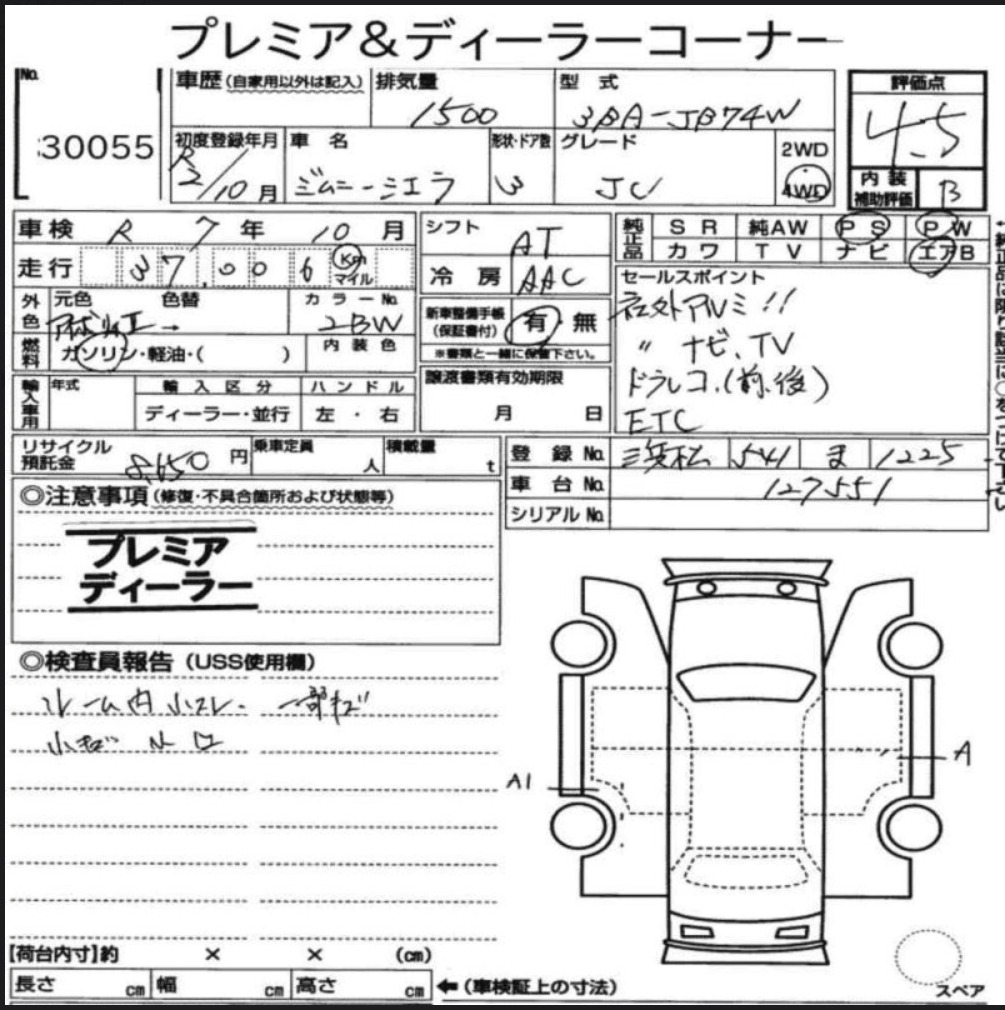 プレミア&ディーラーコーナー
No.
30055
車歴 (自家用以外は記入)
排気量
1500
型式
3BA-JB74W
評価点
4.5
初度登録年月
R2/10月
車名
ジムニーシエラ
形状・ドア数
3
グレード
JC
2WD
4WD
内装補助評価
B
車検 R 7年 10月
走行 37,006 Km マイル
シフト
AT
冷房 AAC
純正品
SR 純AW PS PW
カワ TV ナビ エアB
外色
元色
色替
カラーNo.
2BW
燃料
ガソリン・軽油・( )
内装色
新車整備手帳
(保証書付)
有・無
※書類と一緒に保管下さい。
セールスポイント
社外アルミ!!
〃 ナビ、TV
ドラレコ.(前.後)
ETC
輸入車用
年式
輸入区分
ハンドル
ディーラー・並行
左・右
譲渡書類有効期限
月 日
リサイクル預託金
8,650円
乗車定員
人
積載量
t
登録No. 浜松 541 ま 1225
車台No. 127551
シリアルNo.
◎注意事項 (修復・不具合箇所および状態等)
プレミア
ディーラー
◎検査員報告 (USS使用欄)
ルーム内小スレ. 一部キズ
小キズ
A
A1
【荷台内寸】約 × × (cm)
長さ cm 幅 cm 高さ cm
←(車検証上の寸法)
スペア